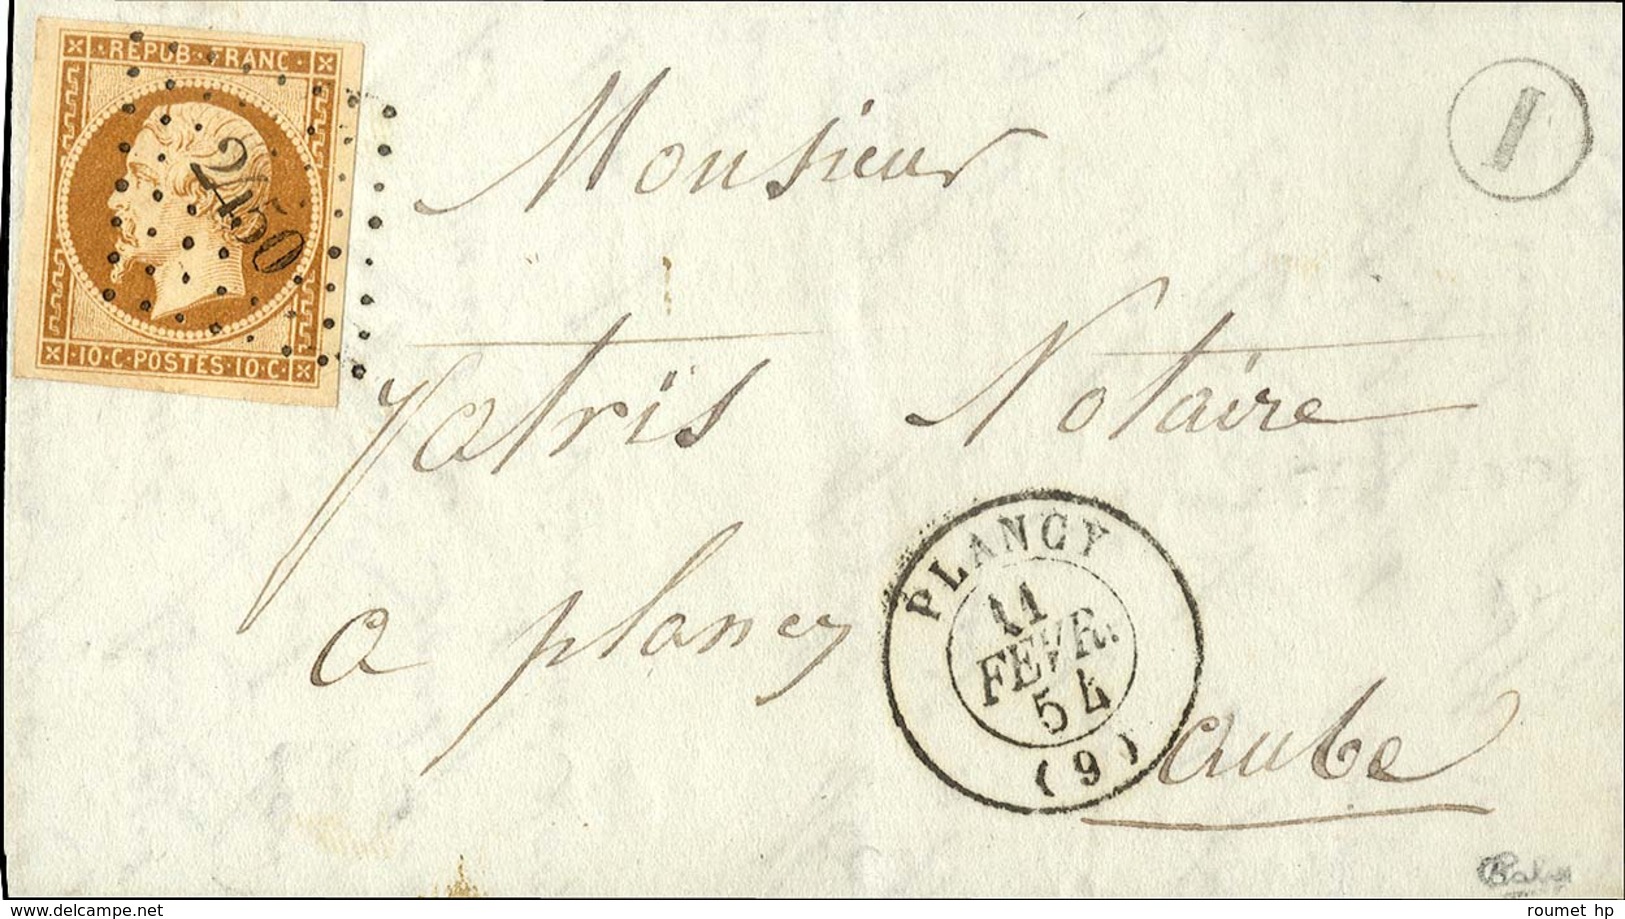 REPUB. FRANC.
2450
10.C.POSTES.10.C.
I
Monsieur
Patris Notaire
a plancy
PLANCY
11
FEVR.
54
(9)
aube
delcampe.net
roumet hp